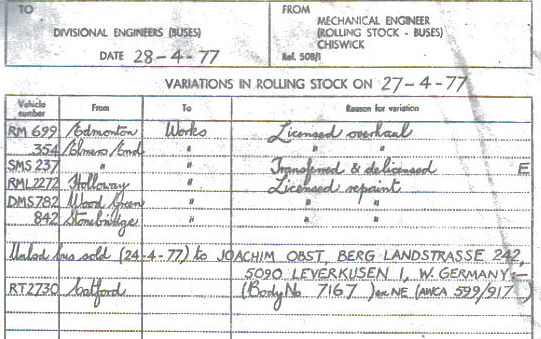 TO
DIVISIONAL ENGINEERS (BUSES)
DATE 28-4-77
FROM
MECHANICAL ENGINEER
(ROLLING STOCK - BUSES)
CHISWICK
Ref. 508/1
VARIATIONS IN ROLLING STOCK ON 27-4-77
Vehicle number From To Reason for variation
RM 699 Edmonton Works Licensed overhaul
354 Elmers End " " "
SMS 237 " " Transferred & delicensed E
RML2272 Holloway " Licensed repaint
DMS782 Wood Green " " "
842 Stonebridge " " "
bus sold (24-4-77) to JOACHIM OBST, BERG LANDSTRASSE 242,
5090 LEVERKUSEN 1, W. GERMANY:-
RT2730 Catford (Body No 7167) ex NE (AWCA 599/917)